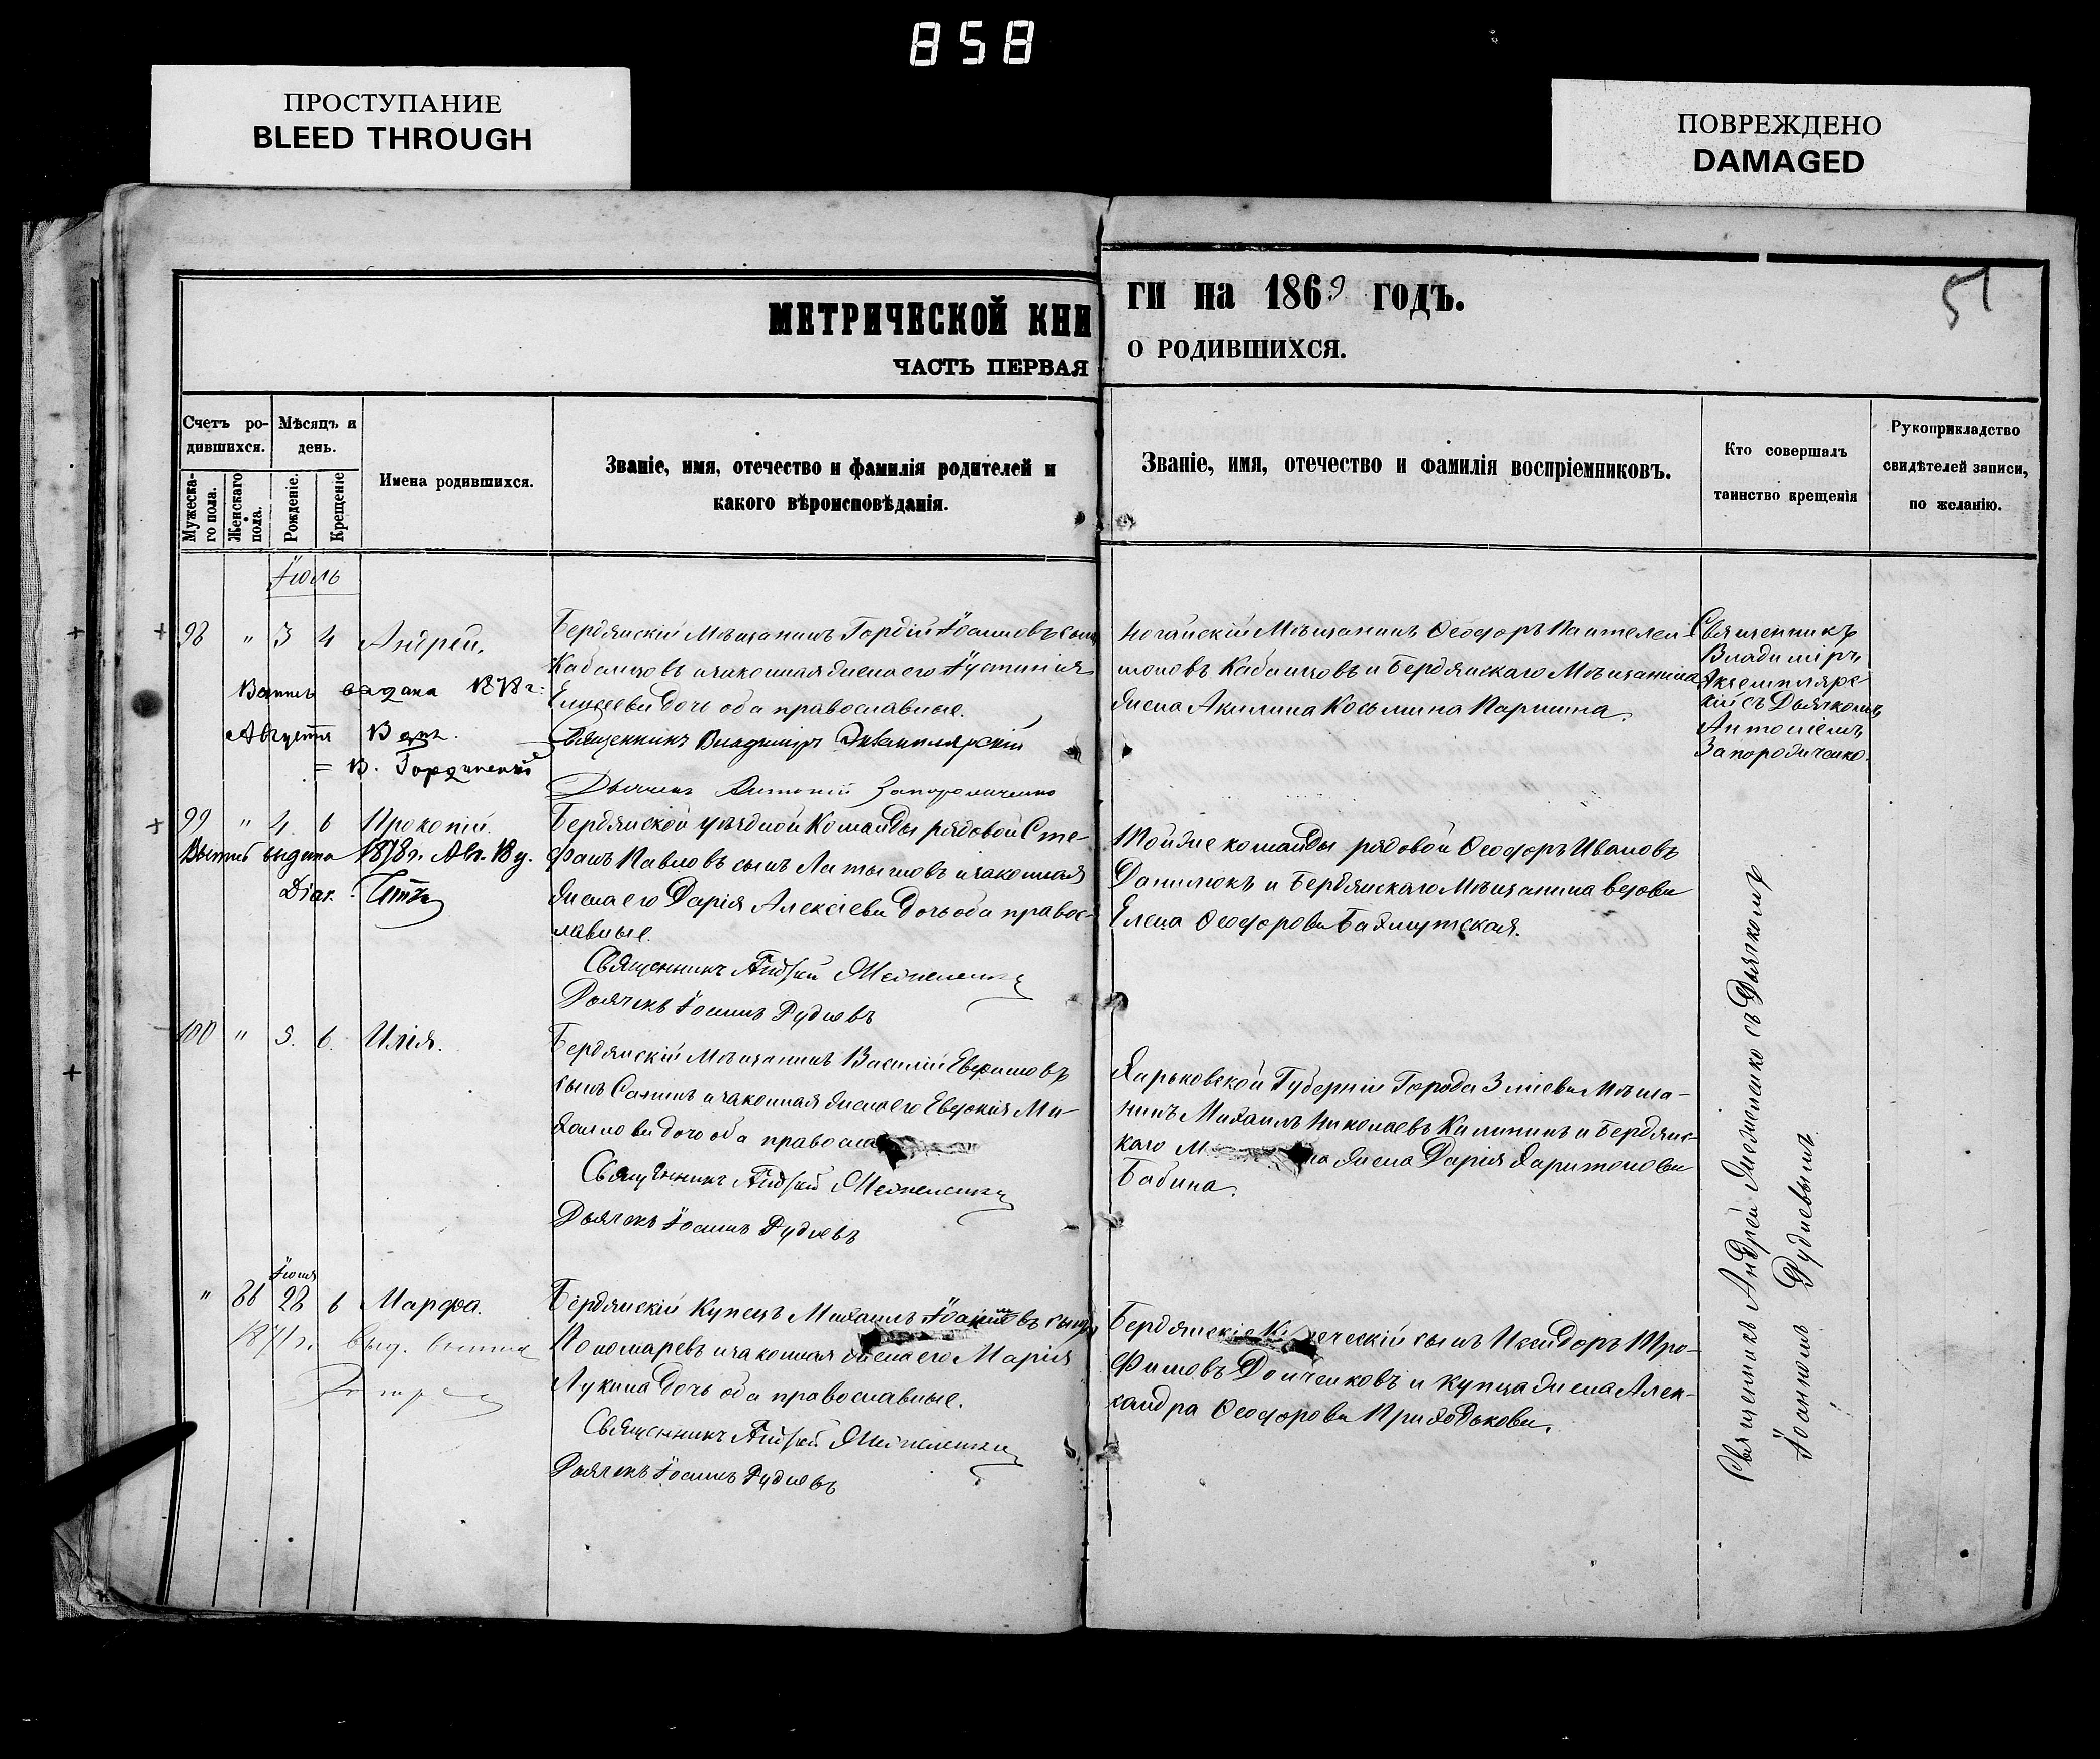 858
ПРОСТУПАНИЕ
BLEED THROUGH
ПОВРЕЖДЕНО
DAMAGED
51
МЕТРИЧЕСКОЙ КНИ
ГИ на 1869 ГОДЪ.
ЧАСТЬ ПЕРВАЯ
О РОДИВШИХСЯ.
Счетъ ро-
дившихся.
Мѣсяцъ и
день.
Мужеска-
го пола.
Женскаго
пола.
Рожденіе.
Крещеніе
Имена родившихся.
Званіе, имя, отечество и фамилія родителей и
какого вѣроисповѣданія.
Званіе, имя, отечество и фамилія воспріемниковъ.
Кто совершалъ
таинство крещенія
Рукоприкладство
свидѣтелей записи,
по желанію.
Іюль
98 " 3 4 Андрей.
Бердянскій Мѣщанинъ Гордій Іоанновъ сынъ
Кабанцовъ и законная жена его Іустинія
Елисеева дочь оба православные.
Священникъ Владиміръ Экземплярскій
Дьячекъ Антоній Запорожченко
дана 1878 г.
Августа
Ногайскій Мѣщанинъ Ѳеодоръ Пантелеи-
моновъ Кабанцовъ и Бердянскаго Мѣщанина
жена Акилина Косьмина Паршина.
Священникъ
Владиміръ
Экземпляр
скій съ Дьячкомъ
Антоніемъ
Запорожченко.
99 " 4 6 Прокопій.
выдана 1878 г. Авг. 18 д.
Бердянской уѣздной Команды рядовой Сте-
фанъ Павловъ сынъ Латышовъ и законная
жена его Дарія Алексіева дочь оба правос-
лавные.
Священникъ Андрей
Дьячекъ Іоаннъ Рудневъ
Той же команды рядовой Ѳеодоръ Ивановъ
Данилюкъ и Бердянскаго Мѣщанина вдова
Елена Ѳеодорова Бахмутская.
100 " 5. 6. Илія.
Бердянскій Мѣщанинъ Василій Евфимовъ
сынъ и законная жена его Евдокія Ми-
хаилова дочь оба правосла
Священникъ Андрей
Дьячекъ Іоаннъ Рудневъ
Харьковской Губерніи Города Зміева Мѣща-
нинъ Михаилъ Николаевъ Калининъ и Бердянс-
каго М на жена Дарія Харитонова
Бабина.
Іюня
" 86 28 6 Марфа.
1871 г. выд.
Бердянскій Купецъ Михаилъ Іоакимовъ сынъ
Пономаревъ и законная жена его Марія
Лукина дочь оба православные.
Священникъ Андрей
Дьячекъ Іоаннъ Рудневъ
Бердянскіе ческій сынъ Исидоръ Тро-
фимовъ Донченковъ и купца жена Алек-
сандра Ѳеодорова Приходькова.
Священникъ Андрей съ Дьячкомъ
Іоанномъ Рудневымъ